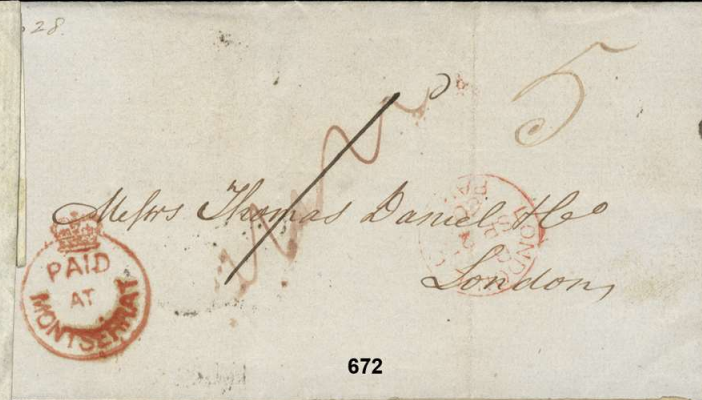 28.
5
Messrs Thomas Daniel & Co
London,
PAID
AT
MONTSERRAT
LONDON
672